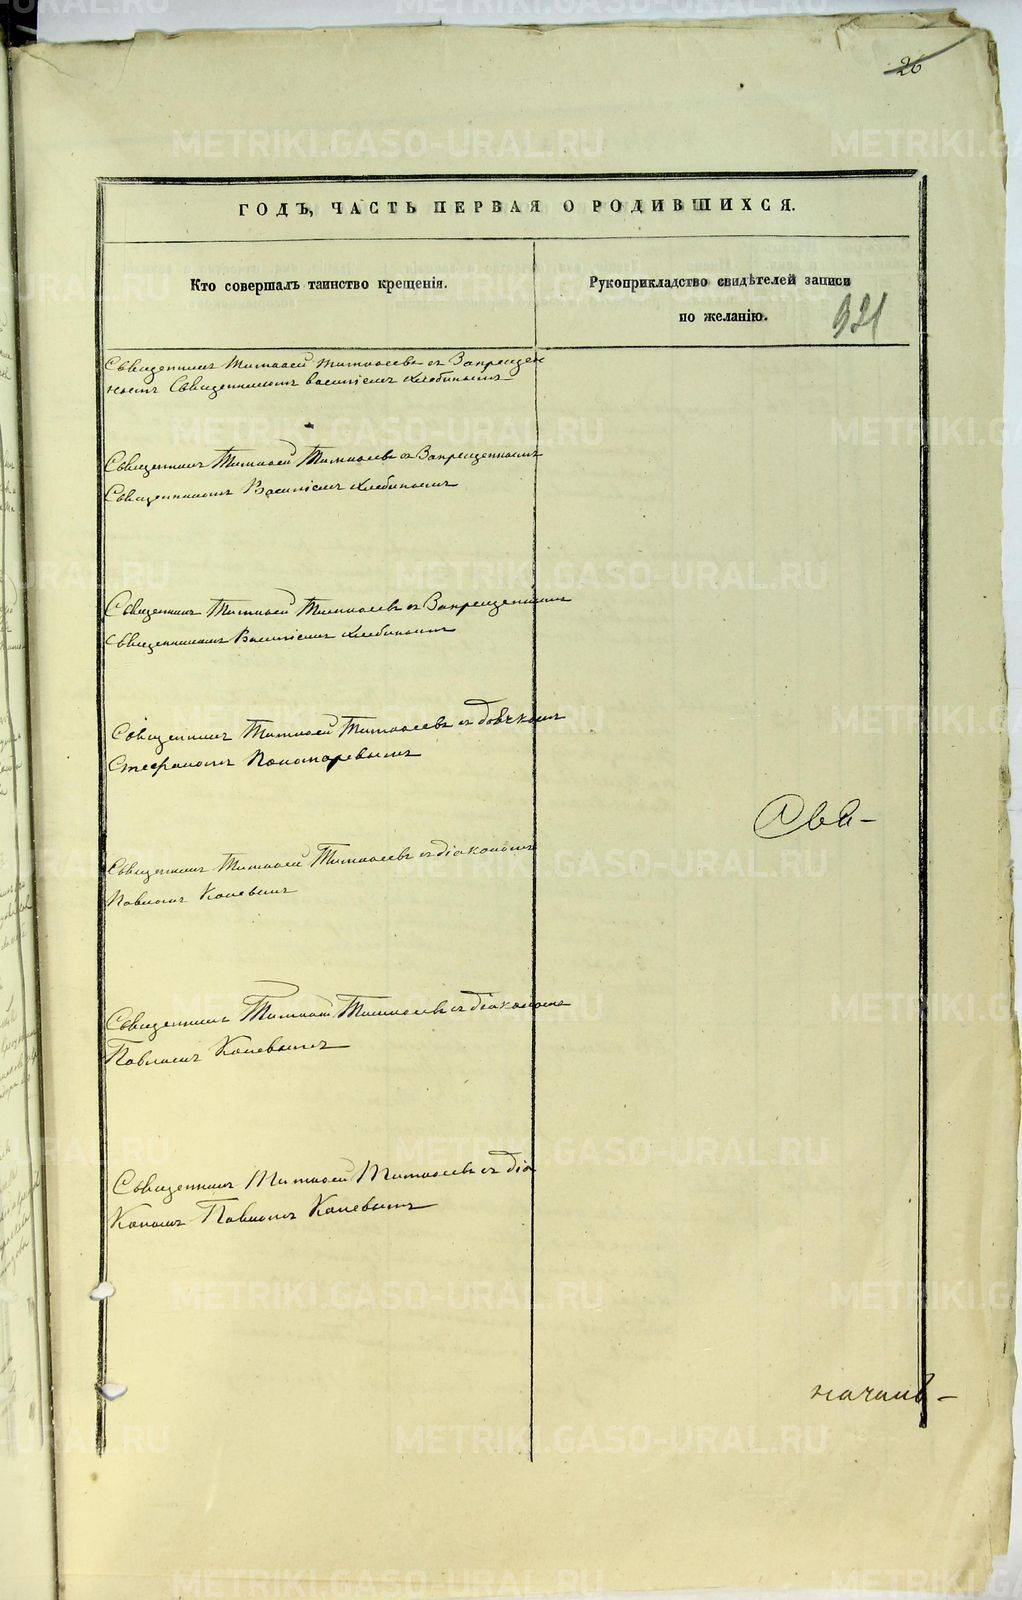 26
ГОДЪ, ЧАСТЬ ПЕРВАЯ О РОДИВШИХСЯ.
Кто совершалъ таинство крещенія.
Рукоприкладство свидѣтелей записи
по желанію.
921
Священникъ Тимофей Тимофеевъ съ Запрещен
нымъ Священникомъ Василіемъ Хлебинымъ
Священникъ Тимофей Тимофеевъ съ Запрещеннымъ
Священникомъ Василіемъ Хлебинымъ
Священникъ Тимофей Тимофеевъ съ Запрещеннымъ
Священникомъ Василіемъ Хлебинымъ
Священникъ Тимофей Тимофеевъ съ дьячкомъ
Стефаномъ Пономаревымъ
Сва-
Священникъ Тимофей Тимофеевъ съ діакономъ
Павломъ Каневымъ
Священникъ Тимофей Тимофеевъ съ діакономъ
Павломъ Каневымъ
Священникъ Тимофей Тимофеевъ съ діа
кономъ Павломъ Каневымъ
METRIKI.GASO-URAL.RU